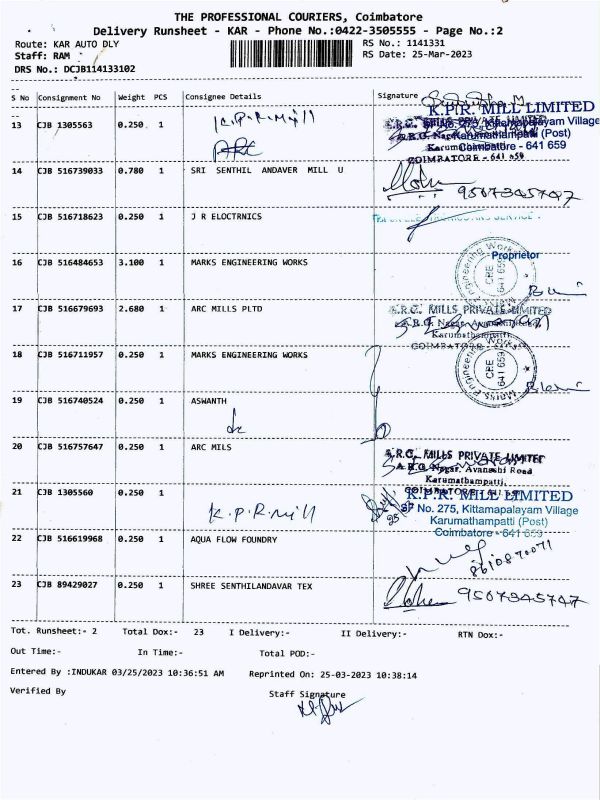 THE PROFESSIONAL COURIERS, Coimbatore
Delivery Runsheet - KAR - Phone No.:0422-3505555 - Page No.:2
Route: KAR AUTO DLY RS No.: 1141331
Staff: RAM RS Date: 25-Mar-2023
DRS No.: DCJB114133102
S No Consignment No Weight PCS Consignee Details Signature
K.P.R. MILL LIMITED
13 CJB 1305563 0.250 1 K.P.R. Mill
Karumathampatti (Post)
Coimbatore - 641 659
14 CJB 516739033 0.780 1 SRI SENTHIL ANDAVER MILL U
15 CJB 516718623 0.250 1 J R ELOCTRNICS
16 CJB 516484653 3.100 1 MARKS ENGINEERING WORKS Proprietor
17 CJB 516679693 2.680 1 ARC MILLS PLTD A.R.C. MILLS PRIVATE LIMITED
18 CJB 516711957 0.250 1 MARKS ENGINEERING WORKS
CBE 641 659
19 CJB 516740524 0.250 1 ASWANTH
20 CJB 516757647 0.250 1 ARC MILS A.R.C. MILLS PRIVATE LIMITED
A.R.C. Nagar, Avanashi Road
Karumathampatti,
21 CJB 1305560 0.250 1 K.P.R. Mill K.P.R. MILL LIMITED
SF No. 275, Kittampalayam Village
Karumathampatti (Post)
Coimbatore - 641 659
22 CJB 516619968 0.250 1 AQUA FLOW FOUNDRY 8610870071
23 CJB 89429027 0.250 1 SHREE SENTHILANDAVAR TEX
Tot. Runsheet:- 2 Total Dox:- 23 I Delivery:- II Delivery:- RTN Dox:-
Out Time:- In Time:- Total POD:-
Entered By :INDUKAR 03/25/2023 10:36:51 AM Reprinted On: 25-03-2023 10:38:14
Verified By Staff Signature